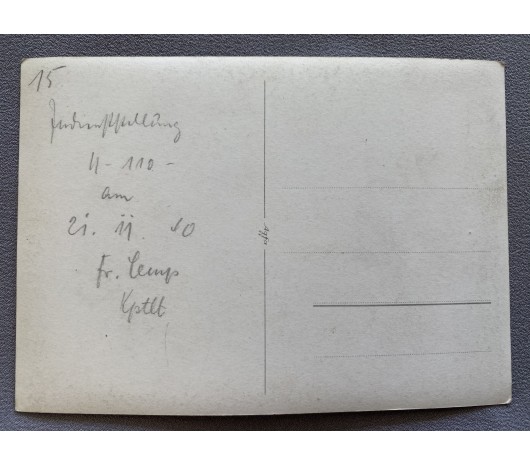 15
Indienststellung
U - 110 -
am
21. 11. 40
Fr. Lemp
Kptlt